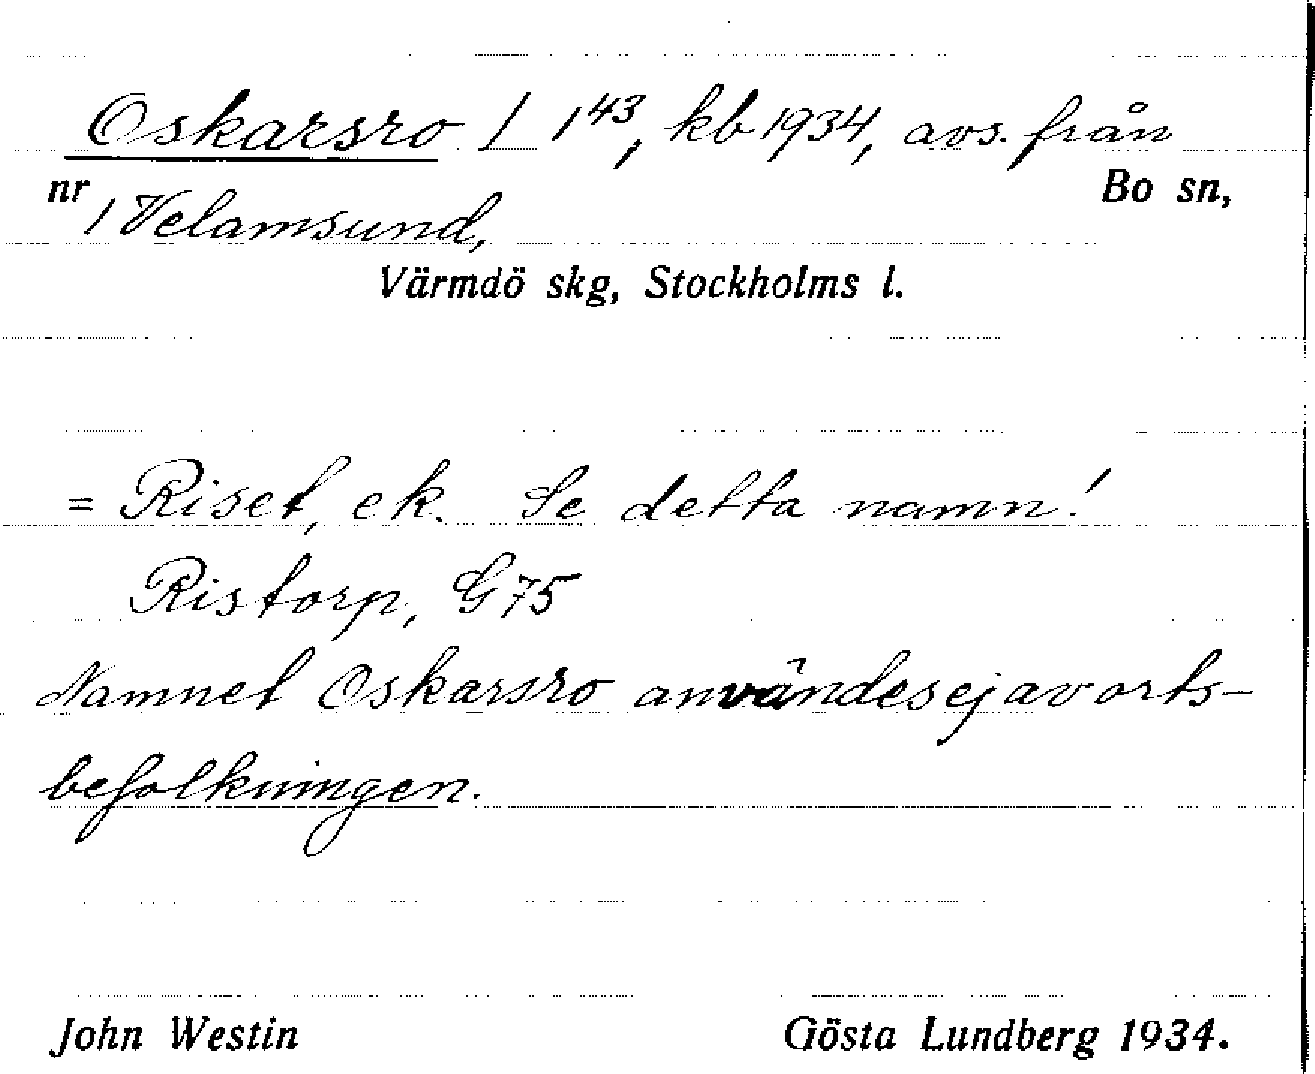 Oskarsro / 1 43, kb 1934, avs. från
nr / Velamsund, Bo sn,
Värmdö skg, Stockholms l.
= Riset, ek. Se detta namn!
Ristorp, G 75
Namnet Oskarsro användes ej av orts-
befolkningen.
John Westin Gösta Lundberg 1934.